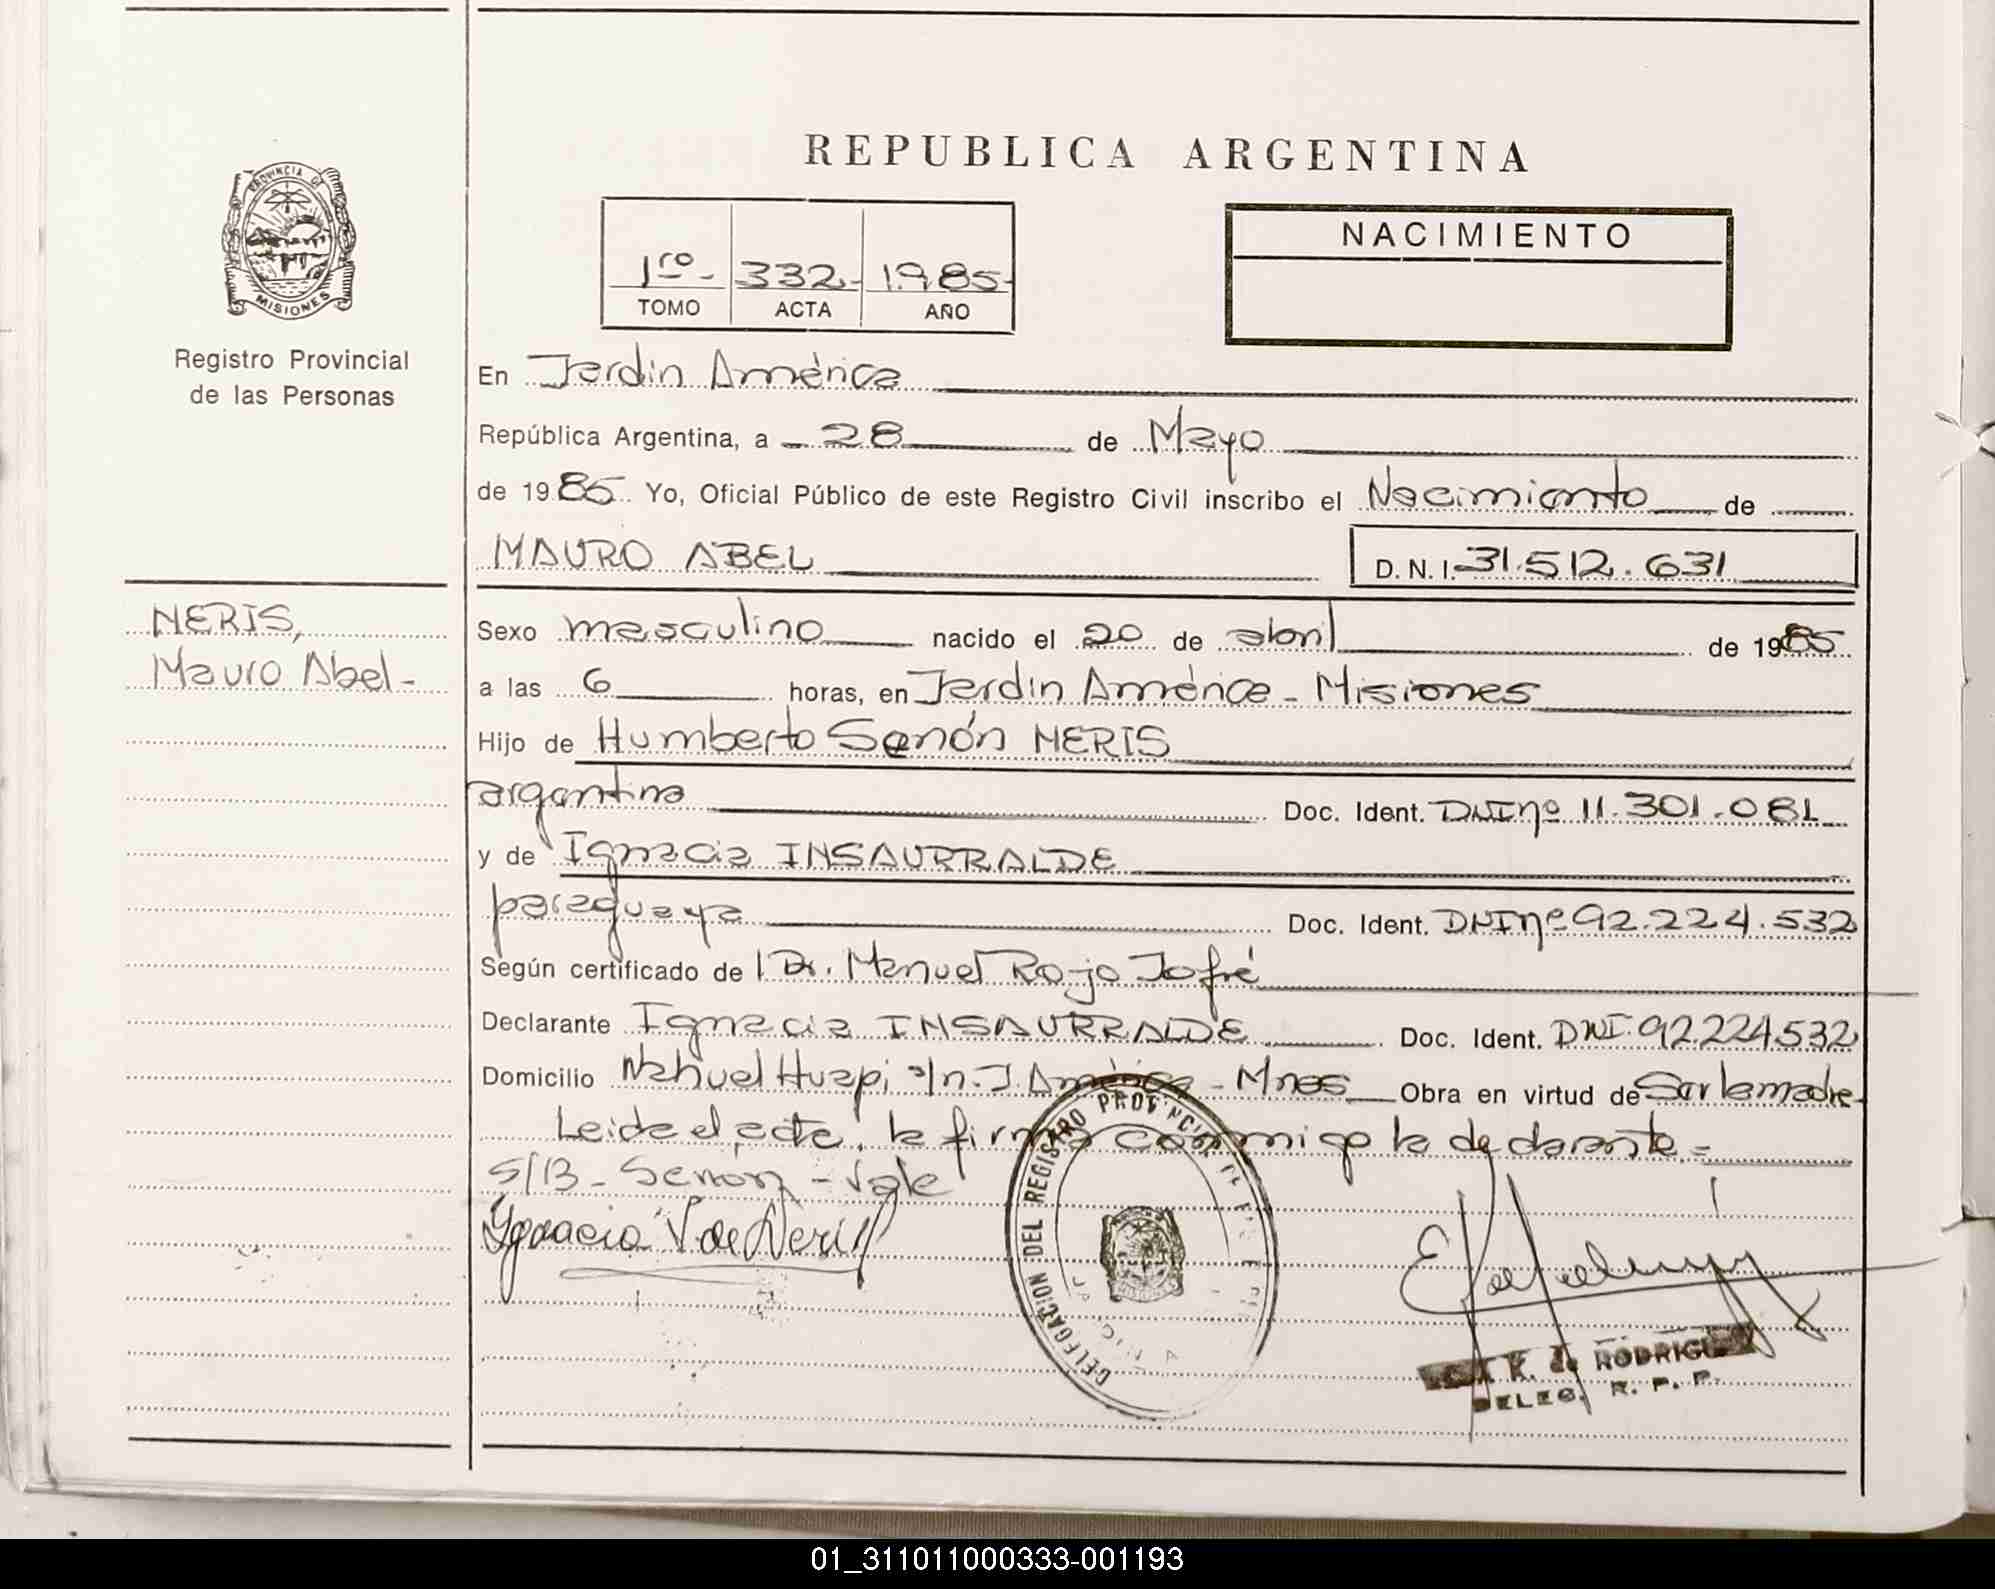 REPUBLICA ARGENTINA
PROVINCIA DE
MISIONES
Registro Provincial
de las Personas
1ro - 332- 1.985-
TOMO ACTA AÑO
NACIMIENTO
En Jardín América
República Argentina, a 28 de Mayo
de 1985 Yo, Oficial Público de este Registro Civil inscribo el Nacimiento de
MAURO ABEL D.N.I. 31.512.631
NERIS,
Mauro Abel-
Sexo masculino nacido el 20 de abril de 1985
a las 6 horas, en Jardín América - Misiones
Hijo de Humberto Senón NERIS
argentina Doc. Ident. DNI nº 11.301.081
y de Ignacia INSAURRALDE
paraguaya Doc. Ident. DNI nº 92.224.532
Según certificado de Dr. Manuel Rojo Jofré
Declarante Ignacia INSAURRALDE Doc. Ident. DNI. 92.224.532
Domicilio Nahuel Huapi s/n. J. América - Mnes Obra en virtud de Ser la madre
Leida el acta, la firma conmigo la declarante.=
S/B - Senón - Vale
Ygnacia de Neris
DELEGACION DEL REGISTRO PROVINCIAL DE
K. de RODRIGUEZ
DELEG. R. P. P.
01_311011000333-001193